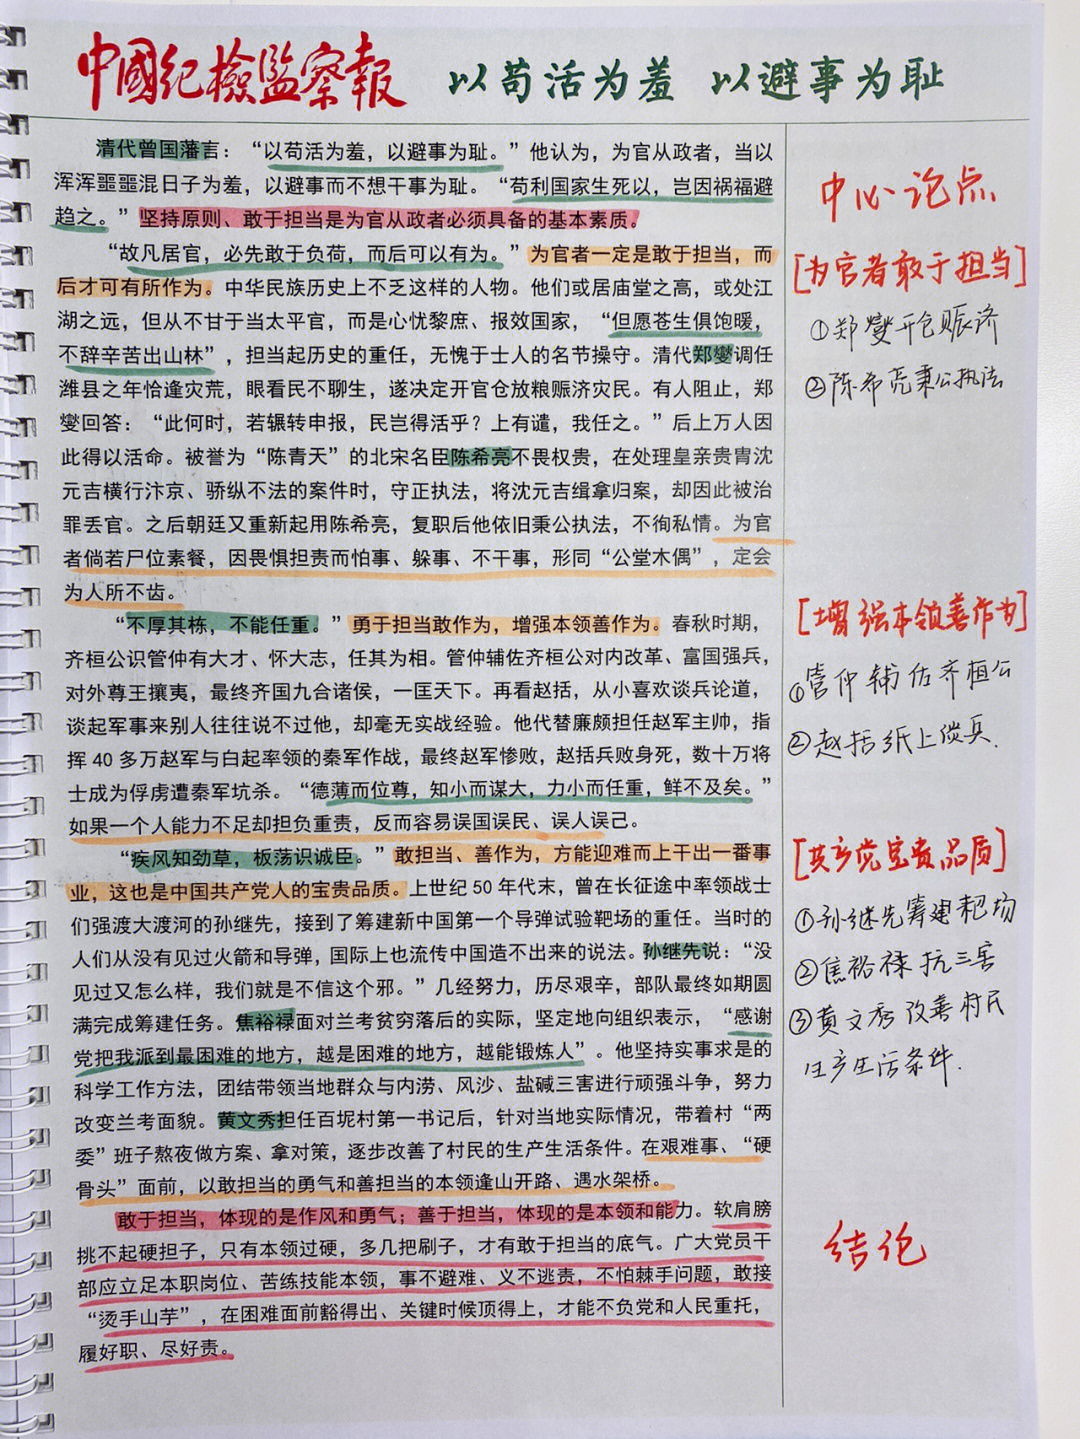 中國纪檢監察報 以苟活为羞 以避事为耻
清代曾国藩言：“以苟活为羞，以避事为耻。”他认为，为官从政者，当以
浑浑噩噩混日子为羞，以避事而不想干事为耻。“苟利国家生死以，岂因祸福避
趋之。”坚持原则、敢于担当是为官从政者必须具备的基本素质。
“故凡居官，必先敢于负荷，而后可以有为。”为官者一定是敢于担当，而
后才可有所作为。中华民族历史上不乏这样的人物。他们或居庙堂之高，或处江
湖之远，但从不甘于当太平官，而是心忧黎庶、报效国家，“但愿苍生俱饱暖，
不辞辛苦出山林”，担当起历史的重任，无愧于士人的名节操守。清代郑燮调任
潍县之年恰逢灾荒，眼看民不聊生，遂决定开官仓放粮赈济灾民。有人阻止，郑
燮回答：“此何时，若辗转申报，民岂得活乎？上有谴，我任之。”后上万人因
此得以活命。被誉为“陈青天”的北宋名臣陈希亮不畏权贵，在处理皇亲贵胄沈
元吉横行汴京、骄纵不法的案件时，守正执法，将沈元吉缉拿归案，却因此被治
罪丢官。之后朝廷又重新起用陈希亮，复职后他依旧秉公执法，不徇私情。为官
者倘若尸位素餐，因畏惧担责而怕事、躲事、不干事，形同“公堂木偶”，定会
为人所不齿。
“不厚其栋，不能任重。”勇于担当敢作为，增强本领善作为。春秋时期，
齐桓公识管仲有大才、怀大志，任其为相。管仲辅佐齐桓公对内改革、富国强兵，
对外尊王攘夷，最终齐国九合诸侯，一匡天下。再看赵括，从小喜欢谈兵论道，
谈起军事来别人往往说不过他，却毫无实战经验。他代替廉颇担任赵军主帅，指
挥 40 多万赵军与白起率领的秦军作战，最终赵军惨败，赵括兵败身死，数十万将
士成为俘虏遭秦军坑杀。“德薄而位尊，知小而谋大，力小而任重，鲜不及矣。”
如果一个人能力不足却担负重责，反而容易误国误民、误人误己。
“疾风知劲草，板荡识诚臣。”敢担当、善作为，方能迎难而上干出一番事
业，这也是中国共产党人的宝贵品质。上世纪 50 年代末，曾在长征途中率领战士
们强渡大渡河的孙继先，接到了筹建新中国第一个导弹试验靶场的重任。当时的
人们从没有见过火箭和导弹，国际上也流传中国造不出来的说法。孙继先说：“没
见过又怎么样，我们就是不信这个邪。”几经努力，历尽艰辛，部队最终如期圆
满完成筹建任务。焦裕禄面对兰考贫穷落后的实际，坚定地向组织表示，“感谢
党把我派到最困难的地方，越是困难的地方，越能锻炼人”。他坚持实事求是的
科学工作方法，团结带领当地群众与内涝、风沙、盐碱三害进行顽强斗争，努力
改变兰考面貌。黄文秀担任百坭村第一书记后，针对当地实际情况，带着村“两
委”班子熬夜做方案、拿对策，逐步改善了村民的生产生活条件。在艰难事、“硬
骨头”面前，以敢担当的勇气和善担当的本领逢山开路、遇水架桥。
敢于担当，体现的是作风和勇气；善于担当，体现的是本领和能力。软肩膀
挑不起硬担子，只有本领过硬，多几把刷子，才有敢于担当的底气。广大党员干
部应立足本职岗位、苦练技能本领，事不避难、义不逃责，不怕棘手问题，敢接
“烫手山芋”，在困难面前豁得出、关键时候顶得上，才能不负党和人民重托，
履好职、尽好责。
中心论点
[为官者敢于担当]
①郑燮开仓赈济
②陈希亮秉公执法
[增强本领善作为]
①管仲辅佐齐桓公
②赵括纸上谈兵.
[共产党宝贵品质]
①孙继先筹建靶场
②焦裕禄抗三害
③黄文秀改善村民
生产生活条件.
结论